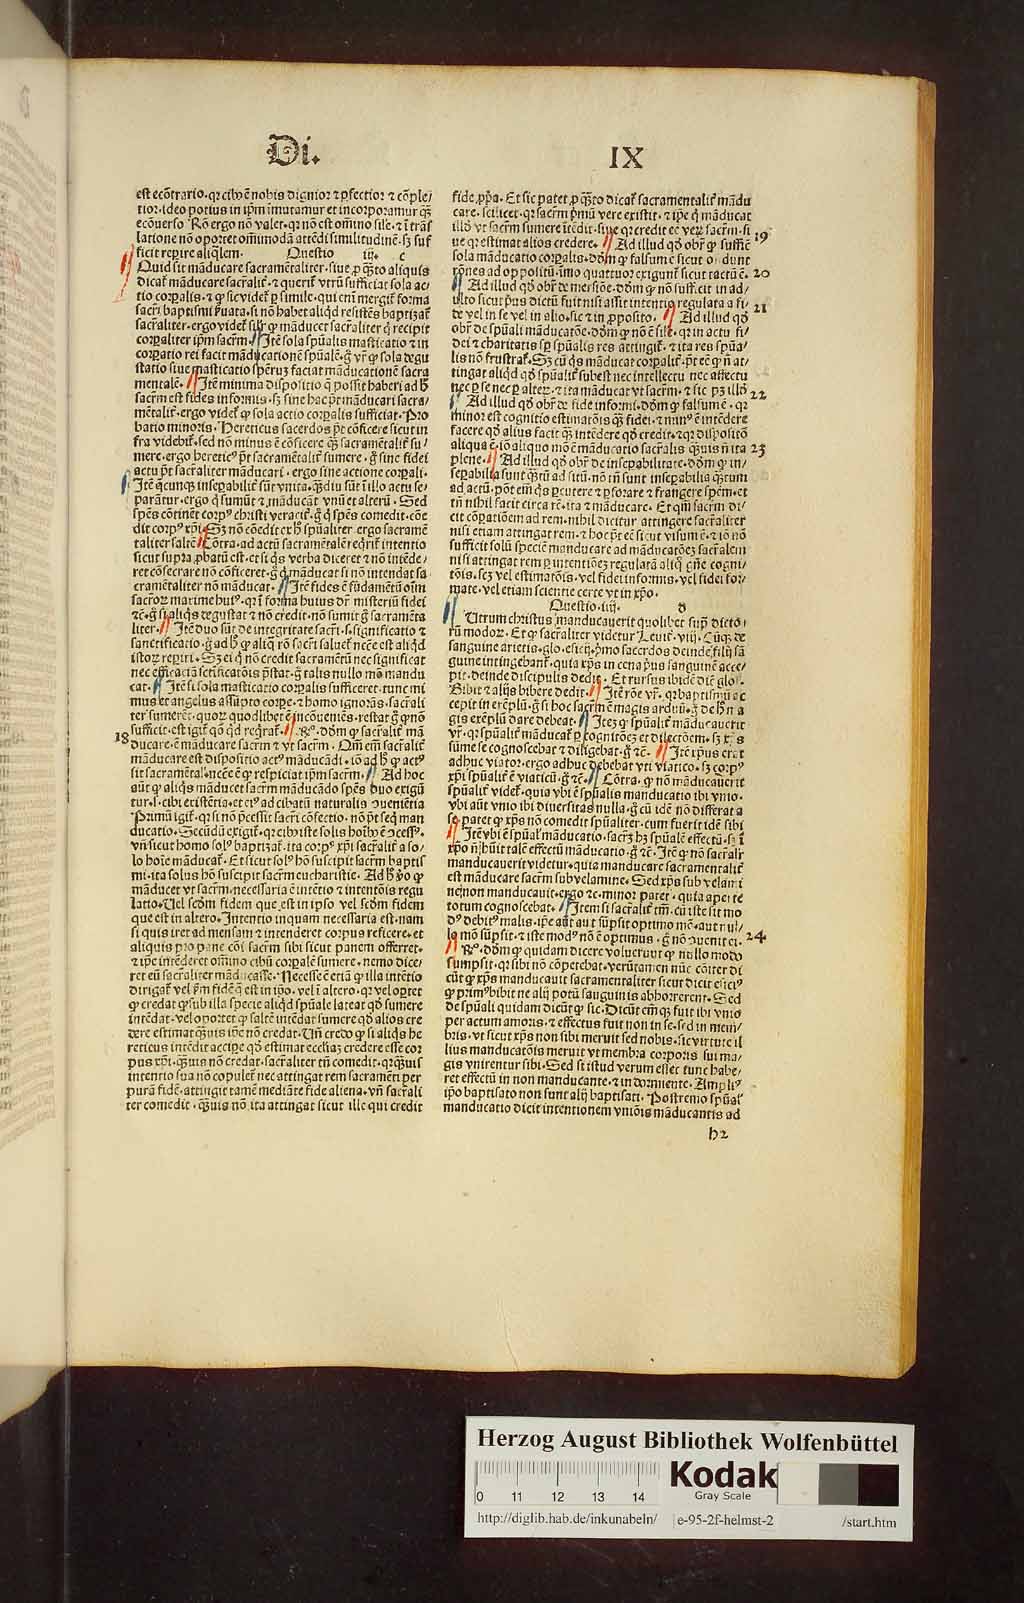 Di. IX
est ecõtrario. qr cib⁹ ẽ nobis dignior ⁊ ꝑfectior ⁊ cõple/
tior. ideo potius in ip̃m imutamur et incorporamur q̃
ecõuerso Rõ ergo nõ valet. qr nõ est om̃ino sile. ⁊ ĩ trãs
latione nõ oportet om̃imodã attẽdi similitudinẽ. sꝫ suf
ficit reꝑire aliq̃lem. Questio iij. c
Quid sit mãducare sacramẽtaliter. siue ꝓ q̃to aliquis
dicať mãducare sacr̃aliť. ⁊ queriť vtrũ sufficiat sola ac/
tio corꝑalis. ⁊ ꝙ sic videť ꝑ simile. qui em̃ mergiť forma
sacri baptismi ẜuata. si nõ habet aliqd resistẽs baptizať
sacr̃aliter. ergo videť silr ꝙ mãducet sacr̃aliter q̃ recipit
corꝑaliter ip̃m sacrm̃. Itẽ sola sp̃ualis masticatio ⁊ in
corꝑatio rei facit mãducationẽ sp̃ualẽ. g̃ vr̃ ꝙ sola degu
statio siue masticatio sperũꝫ faciat mãducationẽ sacra
mentalẽ. Itẽ minima dispositio q̃ possit haberi ad h̃
sacrm̃ est fides informis. sꝫ sine hac pr̃t mãducari sacra/
mẽtaliť. ergo videť ꝙ sola actio corꝑalis sufficiat. Pro
batio minoris. Hereticus sacerdos pr̃t cõficere sicut in
fra videbiť. sed nõ minus ẽ cõficere q̃ sacramẽtaliť su/
mere. ergo heretic⁹ pr̃t sacr̃aliter sumere. g̃ sine fidei
actu pr̃t sacr̃aliter mãducari. ergo sine actione corꝑali.
Itẽ q̃cunqꝫ inseꝑabiliť sũt vnita. q̃diu sũt ĩ illo actu se/
parãtur. ergo q̃ sumũt ⁊ mãducãt vnũ et alterũ. Sed
sp̃es cõtinẽt corp⁹ christi veraciť. g̃ q̃ sp̃es comedit. cõe
dit corp⁹ xp̃i. Sꝫ nõ cõedit corꝑ h̃ sp̃ualiter. ergo sacramẽ
taliter saltẽ. Cõtra. ad actũ sacramẽtalẽ reqriť intentio
sicut supra ꝓbatũ est. et si q̃s verba diceret ⁊ nõ intẽde/
ret cõsecrare nõ cõficeret. g̃ q̃ mãducat si nõ intendat sa
cramẽtaliter nõ mãducat. Itẽ fides ẽ fũdamẽtũ oĩm
sacror maxime hui⁹. qr ĩ forma huius dr̃ misteriũ fidei
⁊c. g̃ si aliqs degustat ⁊ nõ credit. nõ sumit g̃ sacramẽta
liter. Itẽ duo sũt de integritate sacri. s. significatio ⁊
sanctificatio. g̃ ad h̃ ꝙ aliq̃ rõ sacri salueť necẽ est aliqd
istor reꝑiri. Sꝫ ei q̃ nõ credit sacramẽtũ nec significat
nec efficaciã sctificatõis p̃stat. g̃ talis nullo mõ mandu
cat. Itẽ si sola masticatio corꝑalis sufficeret. tunc mi
mus et angelus assũpto corꝑe. ⁊ homo ignorãs. sacr̃ali
ter sumeret. quor quodlibet ẽ incõueniẽs. restat g̃ ꝙ nõ
sufficit. est igiť q̃o qd reqraľ. Rº. dõm ꝙ sacr̃aliť mã
ducare. ẽ manducare sacrm̃ ⁊ vt sacrm̃. Qm̃ em̃ sacr̃aliť
mãducare est dispositio act⁹ mãducãdi. iõ ad h̃ ꝙ act⁹
sit sacram̃tal. necẽ ẽ ꝙ respiciat ip̃m sacrm̃. Ad hoc
aũt ꝙ aliqs mãducet sacrm̃ mãducãdo sp̃es duo exigũ
tur. s. cibi existẽtia. et ei⁹ ad cibatũ naturalis ɔueniẽtia
Primũ igiť. qr si nõ p̃cessit sacri cõfectio. nõ pr̃t seq̃ man
ducatio. Secũdũ exigiť. qr cib⁹ iste solis hoĩbꝫ ẽ ɔcess⁹.
vñ sicut homo sol⁹ baptizať. ita corp⁹ xp̃i sacr̃aliť a so/
lo hoĩe mãducať. Et sicut sol⁹ hõ suscipit sacrm̃ baptis
mi. ita solus hõ suscipit sacrm̃ eucharistie. Ad h̃ v̊o ꝙ
mãducet vt sacrm̃. necessaria ẽ intẽtio ⁊ intentõis regu
latio. Uel scd̃m fidem que est in ipso vel scd̃m fidem
que est in altero. Intentio inquam necessaria est. nam
si quis iret ad mensam ⁊ intenderet corpus reficere. et
aliquis pro pane cõi sacrm̃ sibi sicut panem offerret.
⁊ ip̃e intẽderet om̃ino cibũ corꝑalẽ sumere. nemo dice/
ret eũ sacr̃aliter mãducasse. Necessẽ etiã ꝙ illa intẽtio
dirigať vel ẜm fidẽ q̃ est in ip̃o. vel ĩ altero. qr vel oꝑtet
ꝙ credat ꝙ sub illa specie aliqd sp̃uale lateat qd sumere
intẽdat. vel oportet ꝙ saltẽ intẽdat sumere qd alios cre
dere estimat q̃uis ip̃e nõ credat. Uñ credo ꝙ si aliqs he
reticus intẽdit acciꝑe qd estimat ecclẽiaꝫ credere esse cor
pus xp̃i. q̃uis nõ credat. sacr̃aliter tñ comedit. qr q̃uis
intentio sua nõ copuleť nec attingat rem sacramẽti per
purã fidẽ. attingit tamẽ mediãte fide aliena. vñ sacr̃ali
ter comedit. q̃uis nõ ita attingat sicut ille qui credit
18
fide ꝓp̃a. Et sic patet ꝓ q̃to dicať sacramentaliť mãdu
care. scilicet. qr sacrm̃ p̃mũ vere existit. ⁊ ip̃e q̃ mãducat
illd̃ vt sacrm̃ sumere ĩtẽdit. siue qr credit eẽ veꝝ sacrm̃. si
ue qr estimat alios credere. Ad illud qd obr̃ ꝙ suffic̃
sola mãducatio corꝑalis. dõm ꝙ falsum ẽ sicut ondunt
rõnes ad oppositũ. imo quattuor exigunť sicut tactũ ẽ.
Ad illud qd obr̃ de mersiõe. dõm ꝙ nõ sufficit in ad/
ulto sicut p̃us dictũ fuit nisi assit intentio regulata a fi/
de vel in se vel in alio. sic ⁊ in ꝓposito. Ad illud qd
obr̃ de sp̃uali mãducatõe. dõm ꝙ nõ ẽ sile. qr in actu fi/
dei ⁊ charitatis sp̃ sp̃ualis res attingiť. ⁊ ita res sp̃ua/
lis nõ frustrať. Sꝫ cũ q̃s mãducat corꝑaliť. pr̃t eẽ ꝙ ñ at/
tingat aliqd qd sp̃ualiť subest nec intellectu nec affectu
nec ꝑ se nec ꝑ alter. ⁊ ita mãducat vt sacrm̃. ⁊ sic pꝫ illd̃
Ad illud qd obr̃ de fide informi. dõm ꝙ falsum ẽ. qr
minor est cognitio estimatõis q̃ fidei. ⁊ min⁹ ẽ intẽdere
facere qd alius facit q̃ intẽdere qd credit. ⁊ qr dispositõ
aliqua ẽ. iõ aliquo mõ ẽ mãducatio sacr̃alis. q̃uis ñ ita
plene. Ad illud qd obr̃ de inseꝑabilitate. dõm ꝙ in/
seꝑabilia sunt q̃tũ ad sitũ. nõ tñ sunt inseꝑabilia q̃tum
ad actũ. põt em̃ q̃s ꝑcutere ⁊ ꝑforare ⁊ frangere spẽm. et
tñ nihil facit circa rẽ. ita ⁊ mãducare. Et qm̃ sacrm̃ di/
cit cõꝑatiõem ad rem. nihil dicitur attingere sacr̃aliter
nisi etiam attingat rem. ⁊ hoc pr̃t eẽ sicut visum ẽ. ⁊ iõ nõ
sufficit solũ speciẽ manducare ad mãducatõeꝫ sacr̃alem
nisi attingat rem ꝑ intentiõeꝫ regulatã aliq̃ gñe cogni/
tõis. scꝫ vel estimatõis. vel fidei informis. vel fidei for/
mate. vel etiam scientie certe vt in xp̃o.
Questio. iiij. d
Utrum christus manducauerit quolibet sup̃ dictõ/
rũ modor. Et ꝙ sacr̃aliter videtur Leuit. viij. Cũqꝫ de
sanguine arietis. glo. esicij. p̃mo sacerdos deinde filij sã
guine intingebanť. quia xp̃s in cena p̃us sanguinẽ acce/
pit. deinde discipulis dedit. Et rursus ibidẽ dicit glo.
Bibit ⁊ alijs bibere dedit. Itẽ rõe vr̃. qr baptismũ ac
cepit in exẽplũ. g̃ si hoc sacrm̃ ẽ magis arduũ. g̃ de h̃ ma
gis exẽplũ dare debeat. Iteꝫ ꝙ sp̃ualiť mãducauerit
vr̃. qr sp̃ualiť mãducať ꝑ cognitõeꝫ et dilectõem. sꝫ xp̃s
sũme se cognoscebat ⁊ diligebat. g̃ ⁊c. Itẽ xp̃us erat
adhuc viator. ergo adhuc debebat vti viatico. sꝫ corp⁹
xp̃i sp̃ualiť ẽ viaticũ. g̃ ⁊c. Cõtra. ꝙ nõ mãducauerit
sp̃ualiť videť. quia vbi ẽ sp̃ualis manducatio ibi vnio.
vbi aũt vnio ibi diuersitas nulla. g̃ cũ idẽ nõ differat a
se. patet ꝙ xp̃s nõ comedit sp̃ualiter. cum fuerit idẽ sibi
Itẽ vbi ẽ sp̃ual⁹ mãducatio. sacrꝫ hꝫ sp̃ualẽ effectũ. sꝫ ĩ
xp̃o ñ h̃uit talẽ effectũ mãducatio. g̃ ⁊c. Itẽ ꝙ nõ sacr̃alr
manducauerit videtur. quia manducare sacramentaliť
est mãducare sacrm̃ sub velamine. Sed xp̃s sub velami
ne non manducauit. ergo ⁊c. minor patet. quia aperte
totum cognoscebat. Item si sacr̃aliť tm̃. cũ iste sit mo
d⁹ debit⁹ malis. ip̃e aũt aut sũpsit optimo mõ. aut nul/
lo mõ sũpsit. ⁊ iste mod⁹ nõ ẽ optimus. g̃ nõ ɔuenit ei.
Rº. dõm ꝙ quidam dicere voluerunt ꝙ nullo modo
sumpsit. qr sibi nõ cõpetebat. verũtamen nũc cõiter di
cũt ꝙ xp̃s manducauit sacramentaliter sicut dicit esici⁹
ꝙ prim⁹ bibit ne alij potũ sanguinis abhorrerent. Sed
de sp̃uali quidam dicũt ꝙ sic. Dicũt em̃ ꝙ fuit ibi vnio
per actum amoris. ⁊ effectus fuit non in se. sed in mem/
bris. vt sicut xp̃s non sibi meruit sed nobis. sic virtute il
lius manducatõis meruit vt membra corporis sui ma/
gis vnirentur sibi. Sed si istud verum esset tunc habe/
ret effectũ in non manducante. ⁊ in dormiente. Ampli⁹
ip̃o baptisato non sunt alij baptisati. Postremo sp̃ual⁹
manducatio dicit intentionem vniõis mãducantis ad
19
20
21
22
23
24
h2
Herzog August Bibliothek Wolfenbüttel
0 11 12 13 14
Kodak
Gray Scale
http://diglib.hab.de/inkunabeln/ e-95-2f-helmst-2 /start.htm